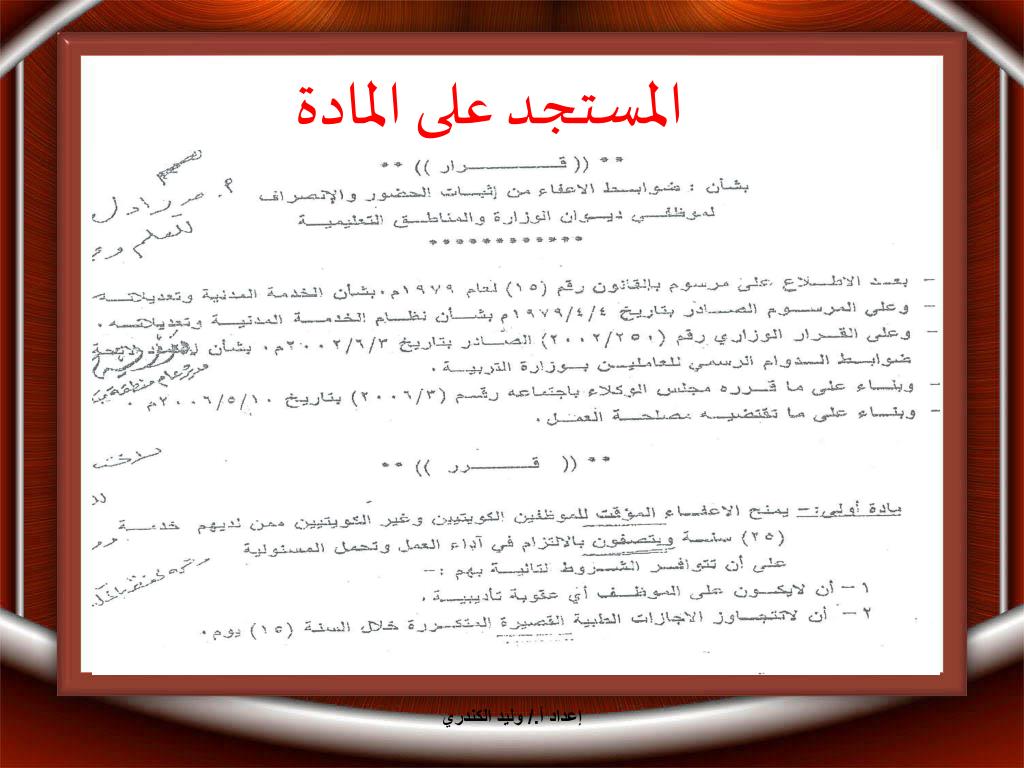 المستجد على المادة
** (( قــــــــرار )) **
بشأن : ضوابط الاعفاء من إثبات الحضور والإنصراف
لموظفي ديوان الوزارة والمناطق التعليمية
************
- بعد الاطلاع على مرسوم بالقانون رقم (١٥) لعام ١٩٧٩م. بشأن الخدمة المدنية وتعديلاته
- وعلى المرسوم الصادر بتاريخ ١٩٧٩/٤/٤م بشأن نظام الخدمة المدنية وتعديلاته .
- وعلى القرار الوزاري رقم (٢٠٠٢/٢٥٠) الصادر بتاريخ ٢٠٠٢/٦/٣م. بشأن لائحة
ضوابط الدوام الرسمي للعاملين بوزارة التربية .
- وبناء على ما قرره مجلس الوكلاء باجتماعه رقم (٢٠٠٦/٣) بتاريخ ٢٠٠٦/٥/١٠م .
- وبناء على ما تقتضيه مصلحة العمل .
** (( قـــــــرر )) **
مادة أولى:- يمنح الاعفاء المؤقت للموظفين الكويتيين وغير الكويتيين ممن لديهم خدمة
(٢٥) سنة ويتصفون بالالتزام في آداء العمل وتحمل المسئولية
على أن تتوافر الشروط التالية بهم :-
١- أن لايكون على الموظف أي عقوبة تأديبية .
٢- أن لاتتجاوز الاجازات الطبية القصيرة المتكررة خلال السنة (١٥) يوم .
للعلم
مدير عام منطقة
إعداد أ./ وليد الكندري